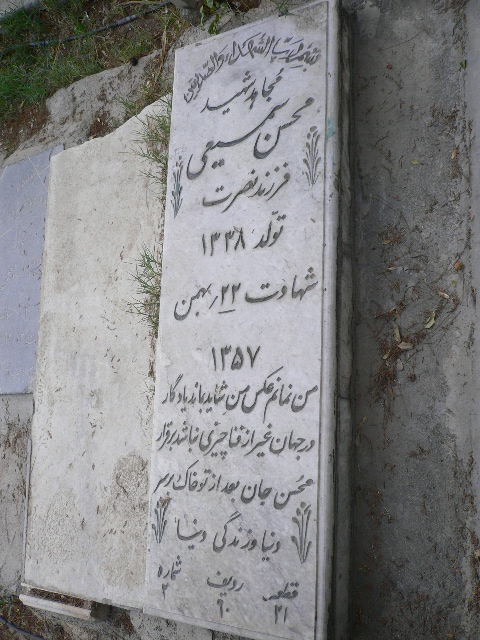 بسم رب الشهدا والصدیقین
مجاهد شهید
محسن سمیعی
فرزند نصرت
تولد ۱۳۳۸
شهادت ۲۲ر بهمن
۱۳۵۷
من نمانم عکس من شاید بماند یادگار
در جهان غیر از فنا چیزی نباشد برقرار
محسن جان بعد از تو خاک بر سر
دنیا و زندگی دنیا
قطعه ردیف شماره
۲۱ ۶۰ ۲